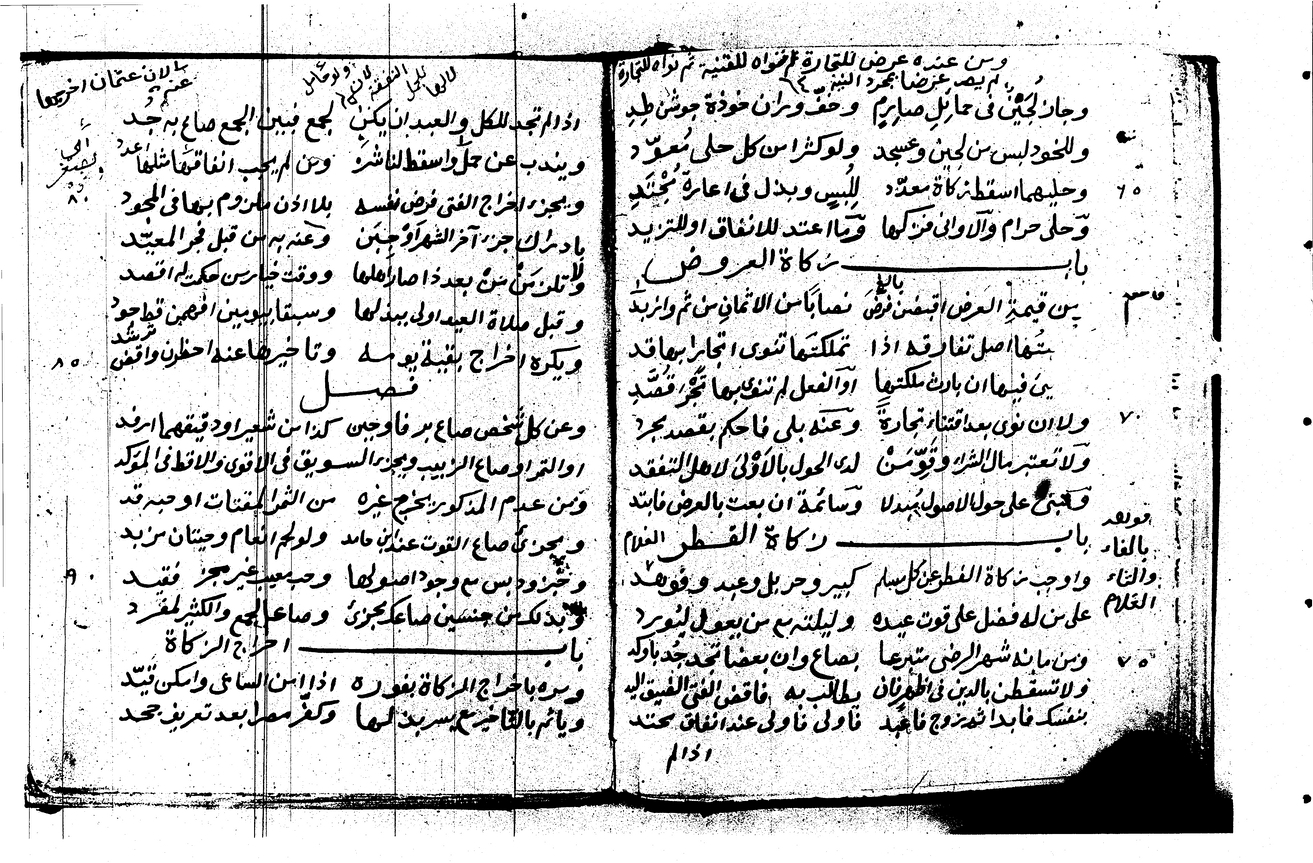 ومن عنده عرض للتجارة فنواه للقنية ثم نواه للتجارة
لم يصر عرضا بمجرد النية
وجاز لجين في حمائل صارم وخف وران خوذة جوشن طد
وللخود لبس من لجين وعسجد ولو كثرا من كل حلي معود
وحليهما اسقط زكاة معدد للبس وبذل في اعارة مجتد
٦٥
وحلي حرام والاواني فزكها وما اعتد للانفاق او للتزيد
باب زكاة العروض
من قيمة العرض اقبضن فرض بالغ نصابا من الاثمان من ثم وازيد
اصل تفارقه اذا تملكتها تنوي اتجارا بها قد
فيها ان بارث ملكتها او الفعل لم تنوي بها تجر قصد
ولا ان نوى بعد اقتناء تجارة وعنه بلى فاحكم بقصد مجرد
٧٠
ولا تعتبر مال الشراء وقومن لدى الحول بالاولى لاهل التفقد
على حول الاصول مبدلا وسائمة ان بعت بالعرض فابتد
باب زكاة الفطر
فوهد بالفاء والثاء الغلام
الغلام
واوجب زكاة الفطر عن كل مسلم كبير وحر بل وعبد وفوهد
على من له فضل على قوت عيده وليلته مع من يعول ليورد
ومن مانه شهر الرضى متبرعا بصاع وان بعضا تجد جد باوكد
٧٥
ولا تسقطن بالدين في اظهر فان يطالب به فاقض الفتى الضيق اليد
بنفسك فابدا ثم زوج فاعبد فاولى فاولى عند انفاق محتد
اذا لم
لان عثمان اخرجها عنهم
اذا لم تجد للكل والعبد ان يكن لجمع فبين الجمع صاع به جد
ويندب عن حمل واسقط لناشز ومن لم يجب انفاقها مثلها اعدد
ويجزء اخراج الفتى فرض نفسه بلا اذن ملزوم بها في المجود
٨٠
بادراك جزء آخر الشهر اوجبن وعنه به من قبل فجر المعيد
ولا تلزمن من بعد ذا صار اهلها ووقت خيار من حكمت له اقصد
وقبل صلاة العيد اولى ببذلها وسبقا بيومين افهمن قط جود
ويكره اخراج بقية يومه وتاخيرها عنه احظرن واقض ترشد
٨٥
فصل
وعن كل شخص صاع بر فاوجبن كذا من شعير او دقيقهما ارفد
او التمر او صاع الزبيب ويجزء السويق في الاقوى والاقط في المؤكد
ومن عدم المذكور يخرج غيره من الثمر المقتات او حبه قد
ويجزئ صاع القوت عند ابن حامد ولو لحم انعام وحيتان مزبد
وخبز ودبس مع وجود اصولها وحب معيب غير مجز فقيد
٩٠
وبذلك من جنسين صاعك يجزئ وصاعا لجمع والكثير لمفرد
باب اخراج الزكاة
ومره باخراج الزكاة بفوره اذا امن الساعي وامكن قيد
وياثم بالتاخير مع يسر بذلها وكفر مصرا بعد تعريف جحد